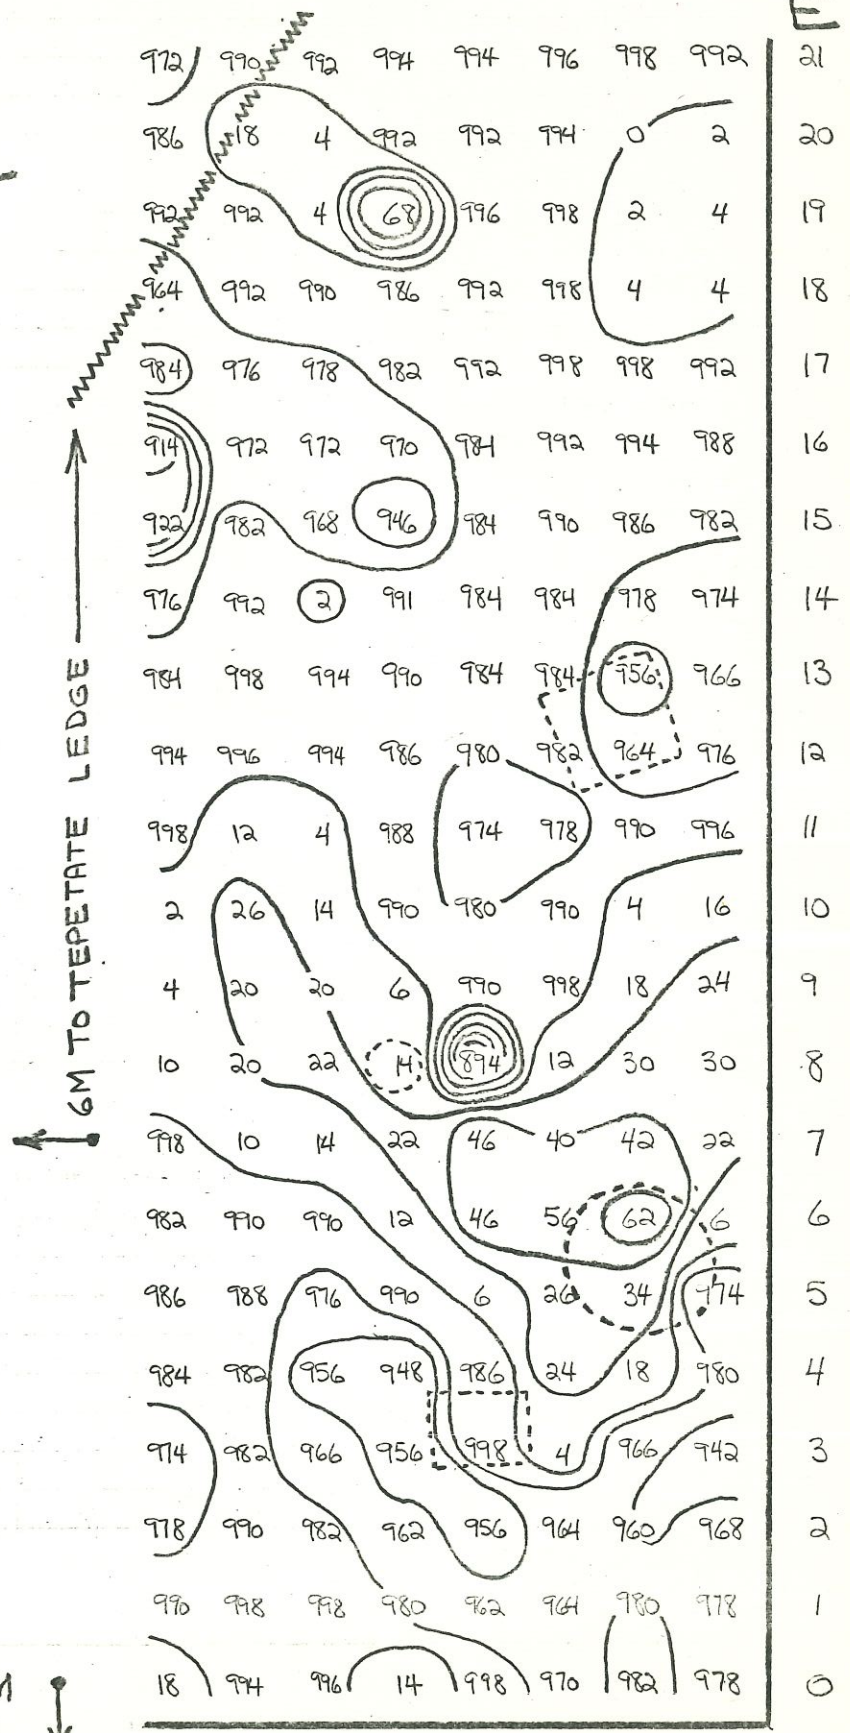 E
972 990 992 994 994 996 998 992 21
986 18 4 992 992 994 0 2 20
992 992 4 68 996 998 2 4 19
964 992 990 986 992 998 4 4 18
984 976 978 982 992 998 998 992 17
914 972 972 970 984 992 994 988 16
922 982 968 946 984 990 986 982 15
976 992 2 991 984 984 978 974 14
984 998 994 990 984 984 956 966 13
994 996 994 986 980 982 964 976 12
998 12 4 988 974 978 990 996 11
2 26 14 990 980 990 4 16 10
4 20 20 6 990 998 18 24 9
10 20 22 14 894 12 30 30 8
998 10 14 22 46 40 42 22 7
982 990 990 12 46 56 62 6 6
986 988 976 990 6 26 34 974 5
984 982 956 948 986 24 18 980 4
974 982 966 956 998 4 966 942 3
978 990 982 962 956 964 960 968 2
990 998 998 980 962 964 980 978 1
18 994 996 14 998 970 982 978 0
6M TO TEPETATE LEDGE